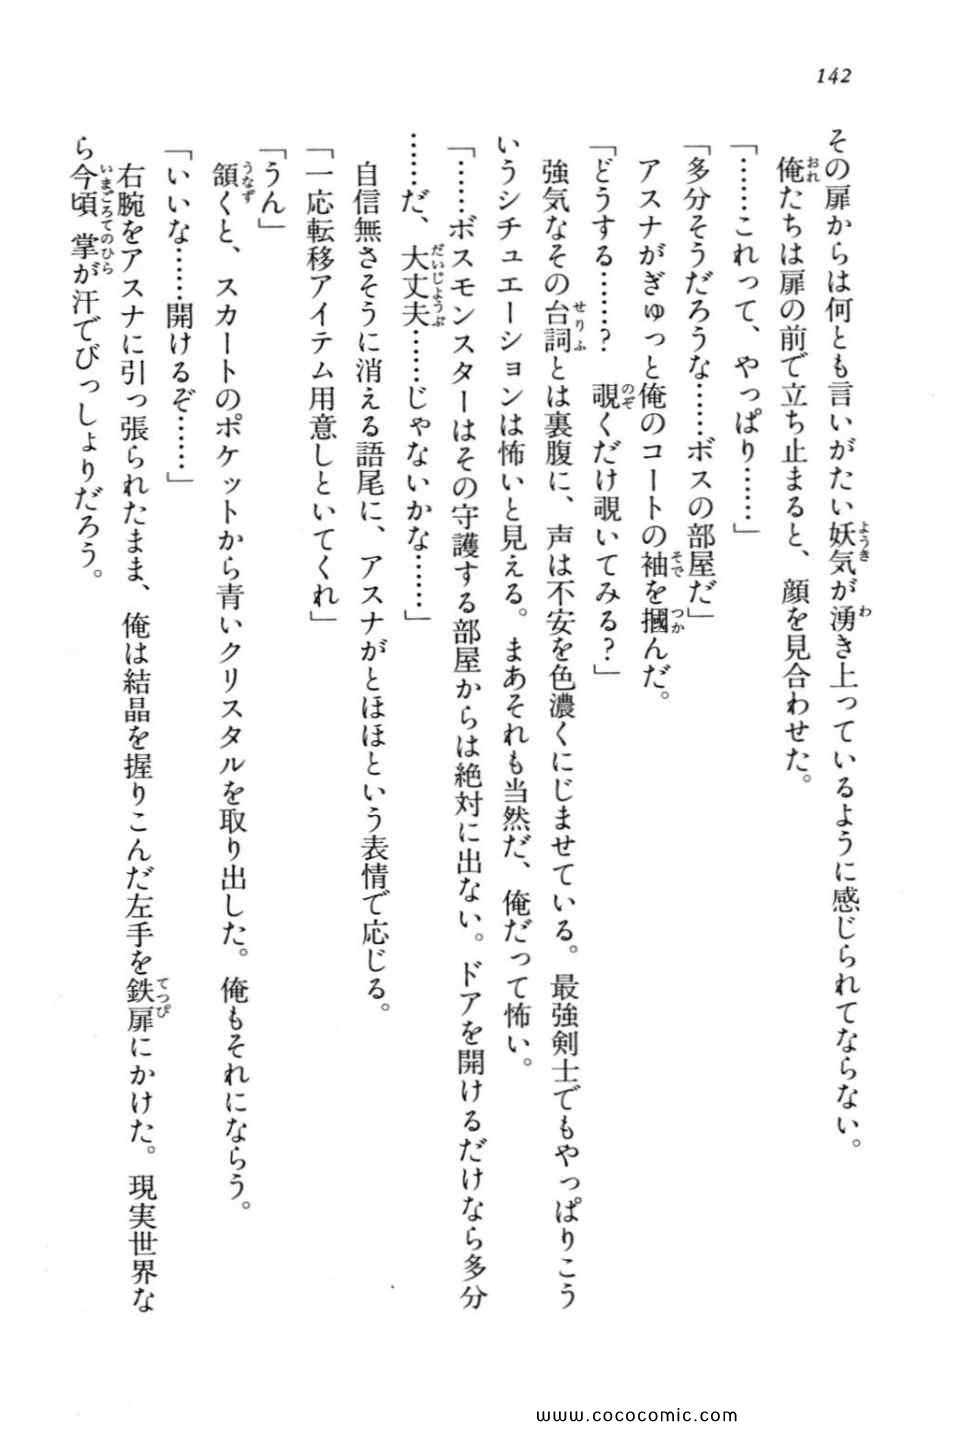 142
その扉からは何とも言いがたい妖気が湧き上っているように感じられてならない。
俺たちは扉の前で立ち止まると、顔を見合わせた。
「……これって、やっぱり……」
「多分そうだろうな……ボスの部屋だ」
アスナがぎゅっと俺のコートの袖を摑んだ。
「どうする……? 覗くだけ覗いてみる?」
強気なその台詞とは裏腹に、声は不安を色濃くにじませている。最強剣士でもやっぱりこう
いうシチュエーションは怖いと見える。まあそれも当然だ、俺だって怖い。
「……ボスモンスターはその守護する部屋からは絶対に出ない。ドアを開けるだけなら多分
……だ、大丈夫……じゃないかな……」
自信無さそうに消える語尾に、アスナがとほほという表情で応じる。
「一応転移アイテム用意しといてくれ」
「うん」
頷くと、スカートのポケットから青いクリスタルを取り出した。俺もそれにならう。
「いいな……開けるぞ……」
右腕をアスナに引っ張られたまま、俺は結晶を握りこんだ左手を鉄扉にかけた。現実世界な
ら今頃掌が汗でびっしょりだろう。
www.cococomic.com